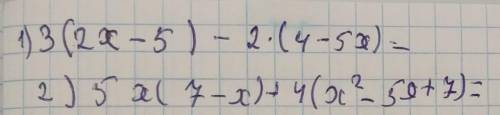 1) 3(2x-5) - 2·(4-5x)=
2) 5 x(7-x)+4(x²-5x+7)=